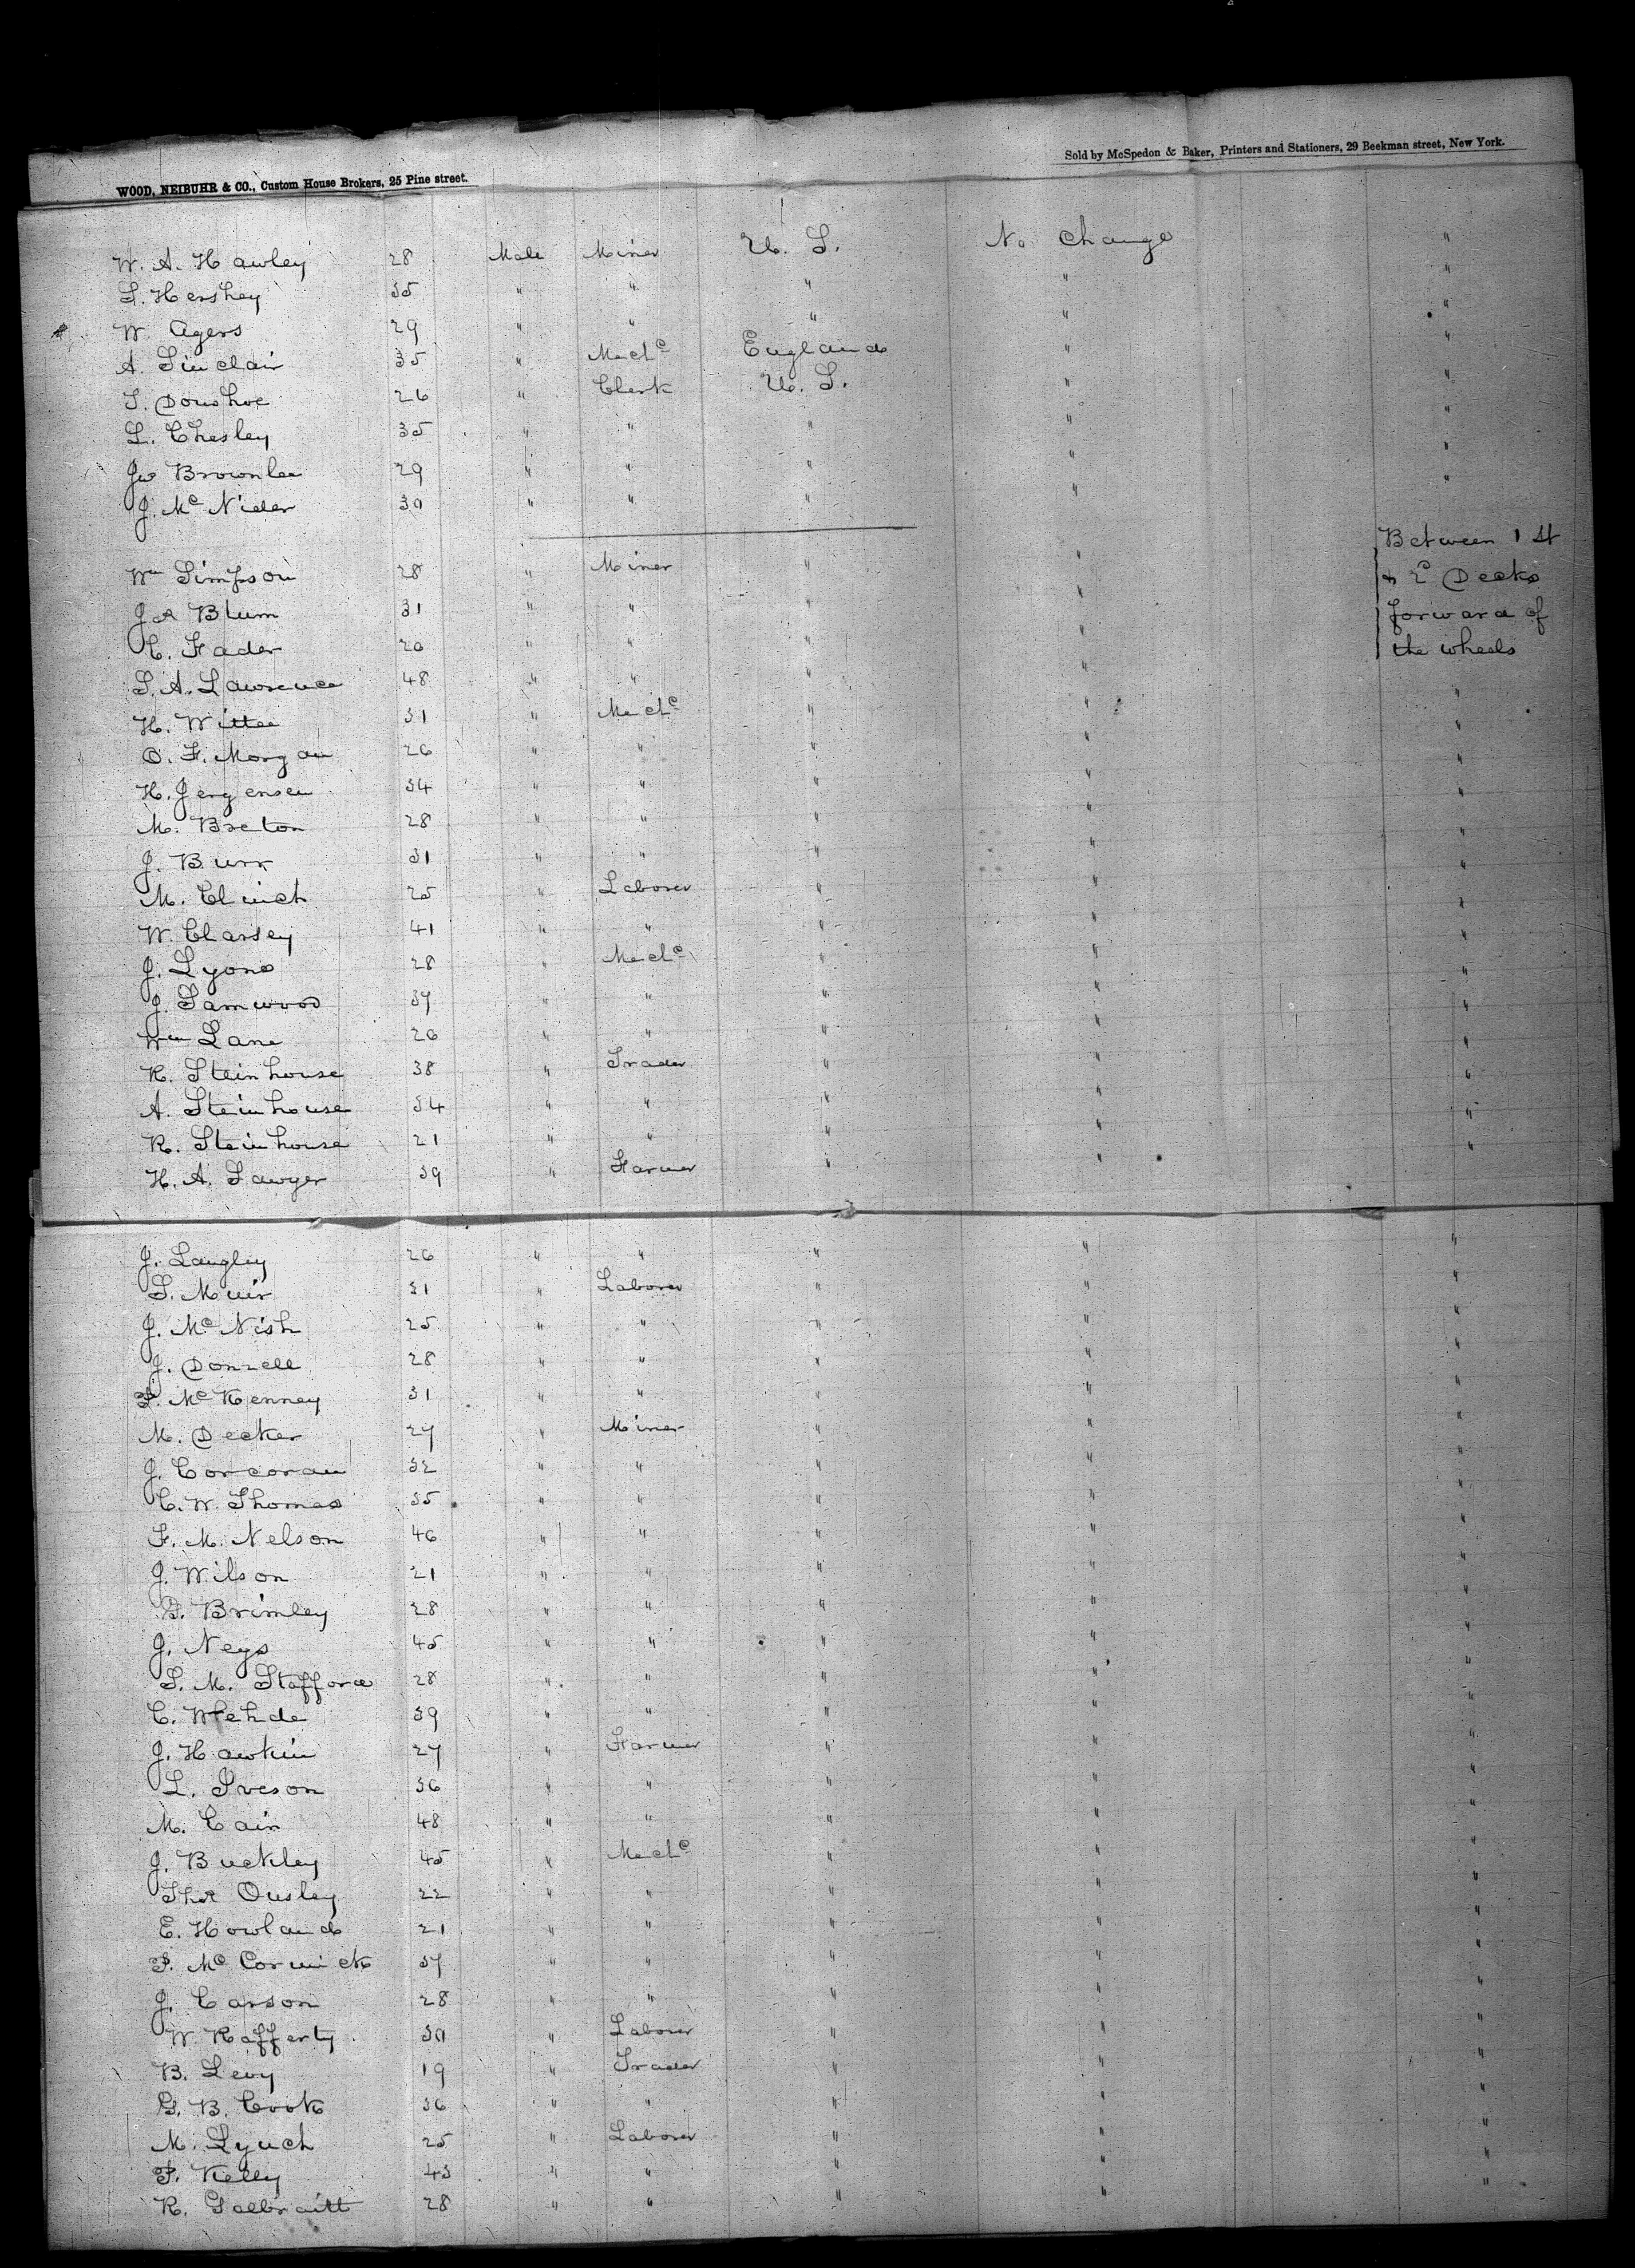 Sold by McSpedon & Baker, Printers and Stationers, 29 Beekman street, New York.
WOOD, NEIBUHR & CO., Custom House Brokers, 25 Pine street.
W. A. Hawley 28 Male Miner U. S. No change "
S. Hershey 35 " " " " "
W. Agers 29 " " " " "
A. Sinclair 35 " Mechc England " "
T. Donohoe 26 " Clerk U. S. " "
L. Chesley 35 " " " " "
Jno Brownlee 29 " " " " "
J. Mc Nider 30 " " " " "
Wm Simpson 28 " Miner " " Between 1st
Jas Blum 31 " " " " & 2d Decks
C. Fader 20 " " " " forward of
S. A. Lawrence 48 " " " " the wheels
H. Wittee 31 " Mechc " " "
O. F. Morgan 26 " " " " "
H. Jergensen 34 " " " " "
M. Breton 28 " " " " "
J. Burr 31 " " " " "
M. Clinch 25 " Laborer " " "
W. Classey 41 " " " " "
J. Lyons 28 " Mechc " " "
J. Samwood 37 " " " " "
Wm Lane 26 " " " " "
R. Steinhouse 38 " Trader " " "
A. Steinhouse 34 " " " " "
R. Steinhouse 21 " " " " "
H. A. Sawyer 39 " Farmer " " "
J. Langley 26 " " " " "
S. Muir 31 " Laborer " " "
J. Mc Nish 25 " " " " "
J. Donnell 28 " " " " "
P. Mc Kenney 31 " " " " "
M. Decker 27 " Miner " " "
J. Corcoran 32 " " " " "
C. W. Thomas 35 " " " " "
F. M. Nelson 46 " " " " "
J. Wilson 21 " " " " "
G. Brimley 28 " " " " "
J. Neys 45 " " " " "
S. M. Stafford 28 " " " " "
C. Wehde 39 " " " " "
J. Hawkin 27 " Farmer " " "
L. Iveson 36 " " " " "
M. Cain 48 " " " " "
J. Buckley 45 " Mechc " " "
Thos Ousley 22 " " " " "
E. Howland 21 " " " " "
P. Mc Cormick 37 " " " " "
J. Carson 28 " " " " "
W. Rafferty 30 " Laborer " " "
B. Levy 19 " Trader " " "
G. B. Cook 36 " " " " "
M. Lynch 25 " Laborer " " "
P. Kelly 43 " " " " "
R. Galbraitt 28 " " " " "